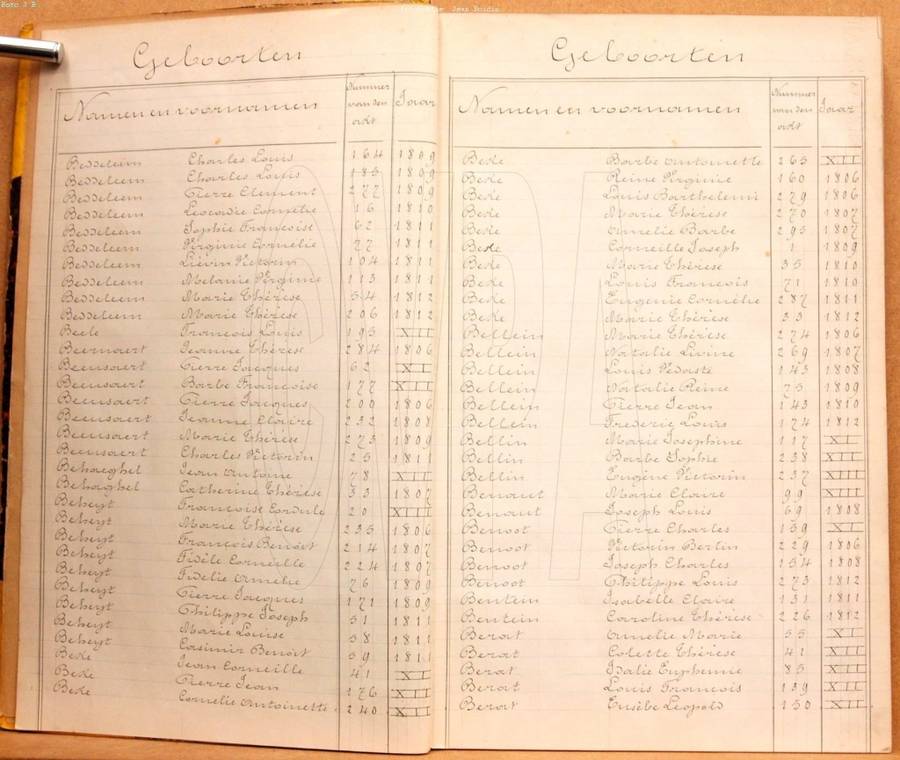 Foto 3 B
Jean Boidin
Geboorten
Namen en voornamen Nummer van den adt Jaar
Beddeleem Charles Louis 164 1809
Beddeleem Charles Louis 185 1809
Beddeleem Pierre Clement 277 1809
Beddeleem Leocadie Cornélie 16 1810
Beddeleem Sophie Françoise 62 1811
Beddeleem Virginie Cornélie 77 1811
Beddeleem Liévin Victorin 104 1811
Beddeleem Melanie Virginie 113 1811
Beddeleem Marie Thérèse 54 1812
Beddeleem Marie Thérèse 206 1812
Beele François Louis 195 XII
Beernaert Jeanne Thérèse 284 1806
Beeusaert Pierre Jacques 62 XI
Beeusaert Barbe Françoise 177 XII
Beeusaert Pierre Jacques 200 1806
Beeusaert Jeanne Claire 232 1808
Beeusaert Marie Thérèse 273 1809
Beeusaert Charles Victorin 25 1811
Behaeghel Jean Antoine 78 XIII
Behaghel Catherine Thérèse 33 1807
Beheyt Françoise Cordule 20 XIII
Beheyt Marie Thérèse 235 1806
Beheyt François Benoit 214 1807
Beheyt Fidèle Corneille 224 1807
Beheyt Fidelie Amelie 76 1809
Beheyt Pierre Jacques 171 1809
Beheyt Philippe Joseph 51 1811
Beheyt Marie Louise 58 1811
Beheyt Casimir Benoit 59 1811
Beke Jean Corneille 41 XI
Beke Pierre Jean 176 XII
Beke Cornelie Antoinette 240 XII
Geboorten
Namen en voornamen Nummer van den adt Jaar
Beke Barbe Antoinette 265 XII
Beke Reine Virginie 160 1806
Beke Louis Barthelemi 279 1806
Beke Marie Thérèse 270 1807
Beke Amelie Barbe 295 1807
Beke Corneille Joseph 1 1809
Beke Marie Thérèse 35 1810
Beke Louis François 71 1810
Beke Eugenie Cornélie 287 1811
Beke Marie Thérèse 33 1812
Bellein Marie Thérèse 274 1806
Bellein Natalie Livine 269 1807
Bellein Louis Védaste 143 1808
Bellein Natalie Reine 75 1809
Bellein Pierre Jean 143 1810
Bellein Frederic Louis 174 1812
Bellin Marie Josephine 117 XI
Bellin Barbe Sophie 238 XII
Bellin Eugène Victorin 237 XIII
Benaut Marie Claire 99 XIII
Benaut Joseph Louis 69 1808
Benoot Pierre Charles 139 XI
Benoot Victorin Bertin 229 1806
Benoot Joseph Charles 154 1808
Benoot Philippe Louis 273 1812
Bentein Isabelle Claire 131 1811
Bentein Caroline Thérèse 226 1812
Berat Amelie Marie 55 XI
Berat Colette Thérèse 41 XII
Berat Idalie Euphemie 85 XII
Berat Louis François 139 XII
Berat Eusèbe Leopold 150 XII